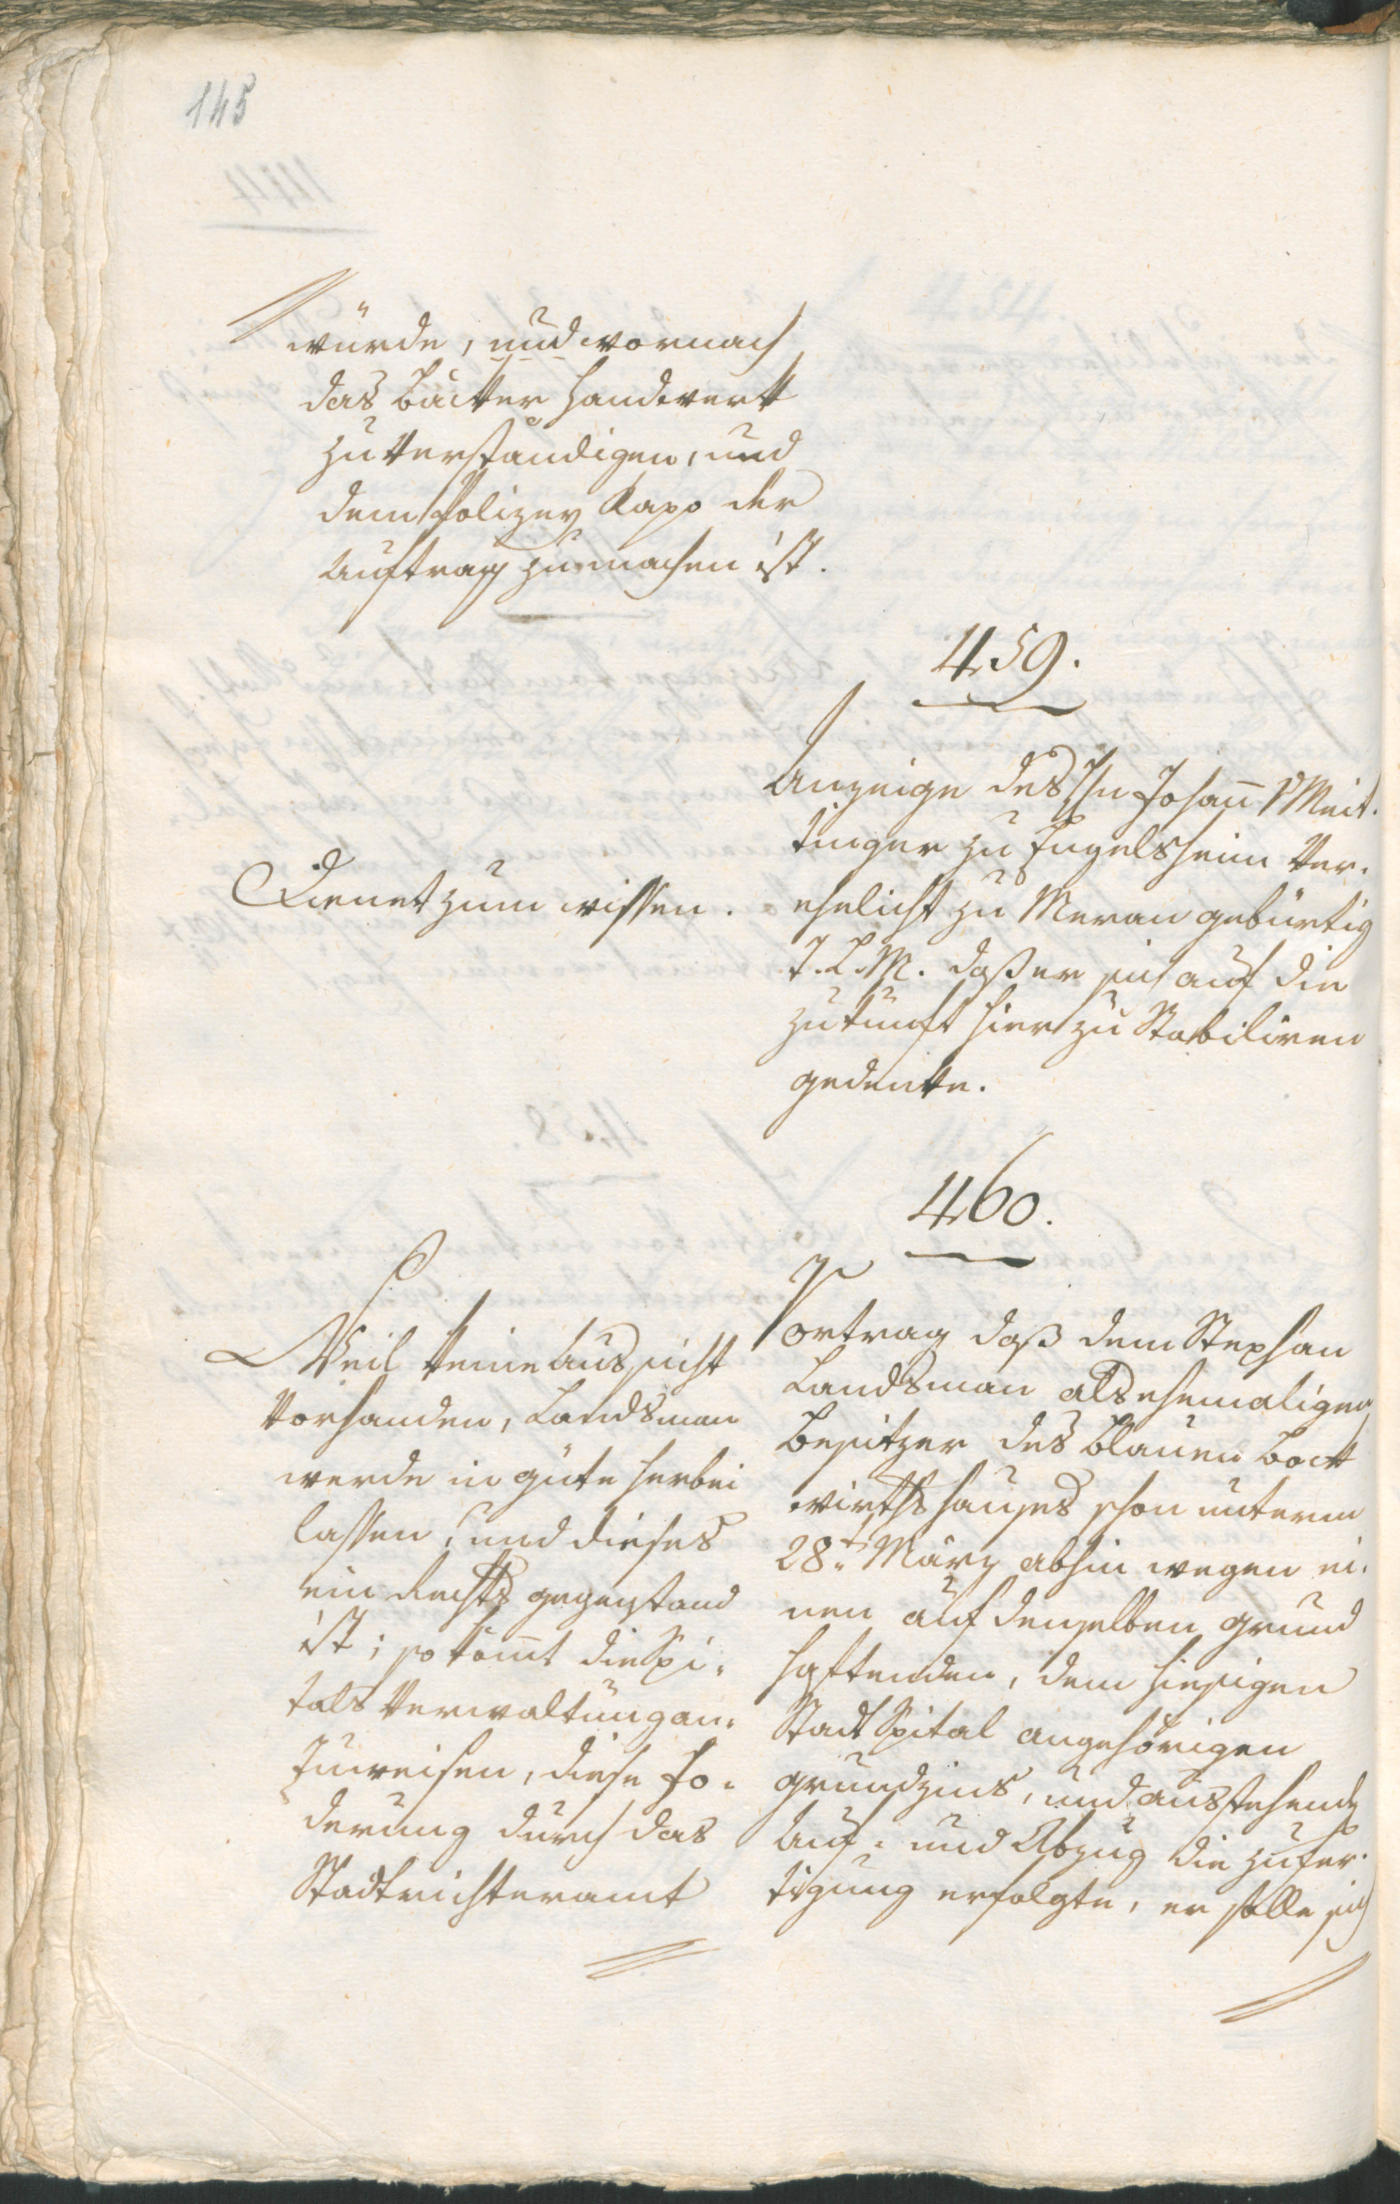 145
würde, und wornach
das Bäcker Handwerk
zu verständigen, und
dem Polizey Kapo der
Auftrag zu machen ist.
459.
Anzeige des Hn Johann v Meit-
tinger zu Engelsheim ver-
ehelicht zu Meran gebürtig
T. L. M. daß er sich auf die
zukunft hier zu Stabiliren
gedenke.
Dienet zum wissen.
460.
Vortrag daß dem Stephan
Landsman als ehemaligen
Besitzer des blauen Bock
wirthshauses schon unterm
28t März abhin wegen ei-
nen auf denselben grund
haftenden, dem hiesigen
Stadt Spital angehörigen
grundzins, und ausstehende
Auf- und Abzug die zufer-
tigung erfolgte, er solle sich
Weil keine Aussicht
vorhanden, Landsman
werde in güte herbei
lassen, und dieses
ein Rechts gegenstand
ist; so kommt die Spi-
tals Verwaltung an-
zuweisen, diese Fo-
derung durch das
Stadtrichteramt